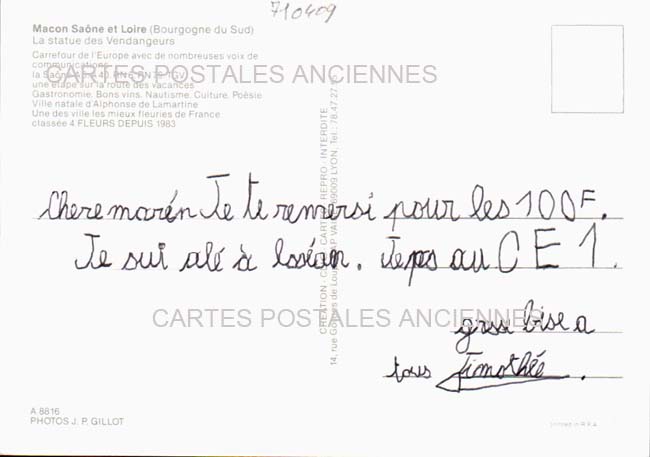 710409
Macon Saône et Loire (Bourgogne du Sud)
La statue des Vendangeurs
Carrefour de l'Europe avec de nombreuses voix de
communications
la Saône A6 A40 RN6 RN79 TGV
une étape sur la route des vacances
Gastronomie. Bons vins. Nautisme. Culture. Poésie
Ville natale d'Alphonse de Lamartine
Une des ville les mieux fleuries de France
classée 4 FLEURS DEPUIS 1983
CARTES POSTALES ANCIENNES
chere marén Je te remersi pour les 100F.
Je sui alé à loséan. Je ps au CE1.
grose bise a
tous Timothée.
CARTES POSTALES ANCIENNES
CREATION CARTE REPRO. INTERDITE
14, rue 69009 LYON, Tel.: 78.47.27
A 8816
PHOTOS J. P. GILLOT
Printed in